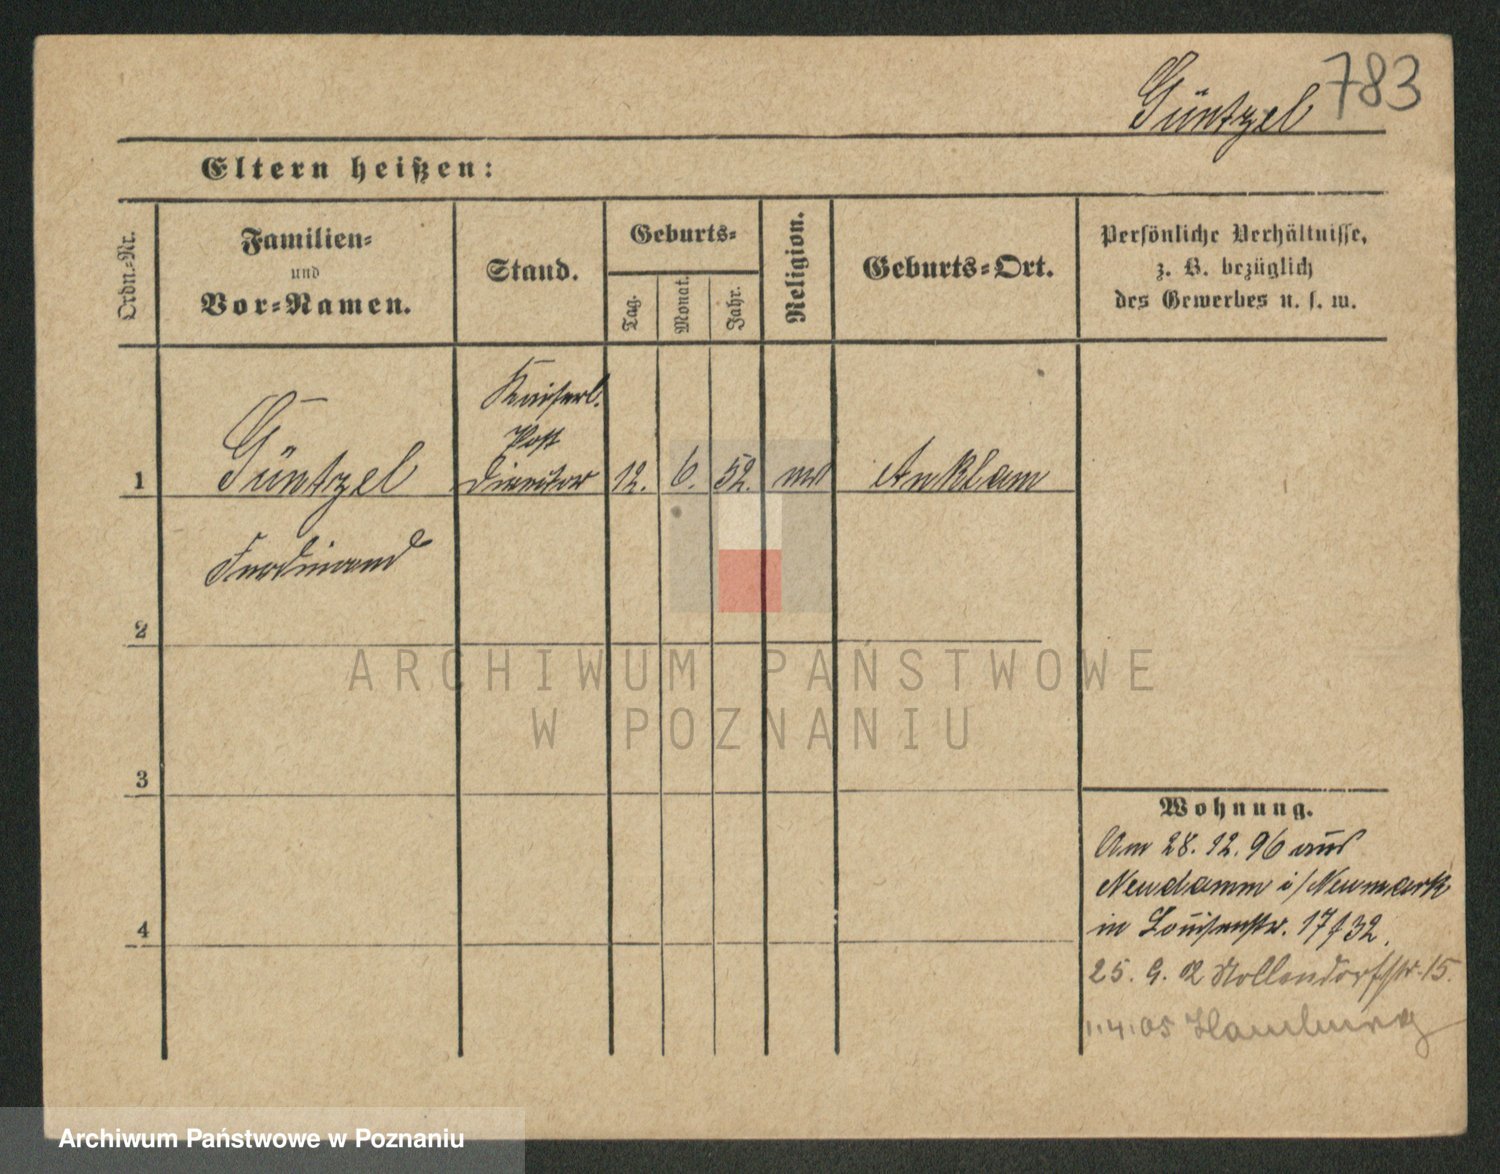 Güntzel 783
Eltern heißen:
Ordn.-Nr.
Familien-
und
Vor-Namen.
Stand.
Geburts-
Tag.
Monat.
Jahr.
Religion.
Geburts-Ort.
Persönliche Verhältnisse,
z. B. bezüglich
des Gewerbes u. s. w.
Kaiserl.
Post
1 Güntzel Director 12. 6. 52. Anklam
Ferdinand
2
ARCHIWUM PAŃSTWOWE
W POZNANIU
3
Wohnung.
Am 28. 12. 96 aus
Neudamm i/Neumark
in Louisenstr. 17/32.
4
25. 9. 02 Nollendorfstr. 15.
1.4.05 Hamburg
Archiwum Państwowe w Poznaniu